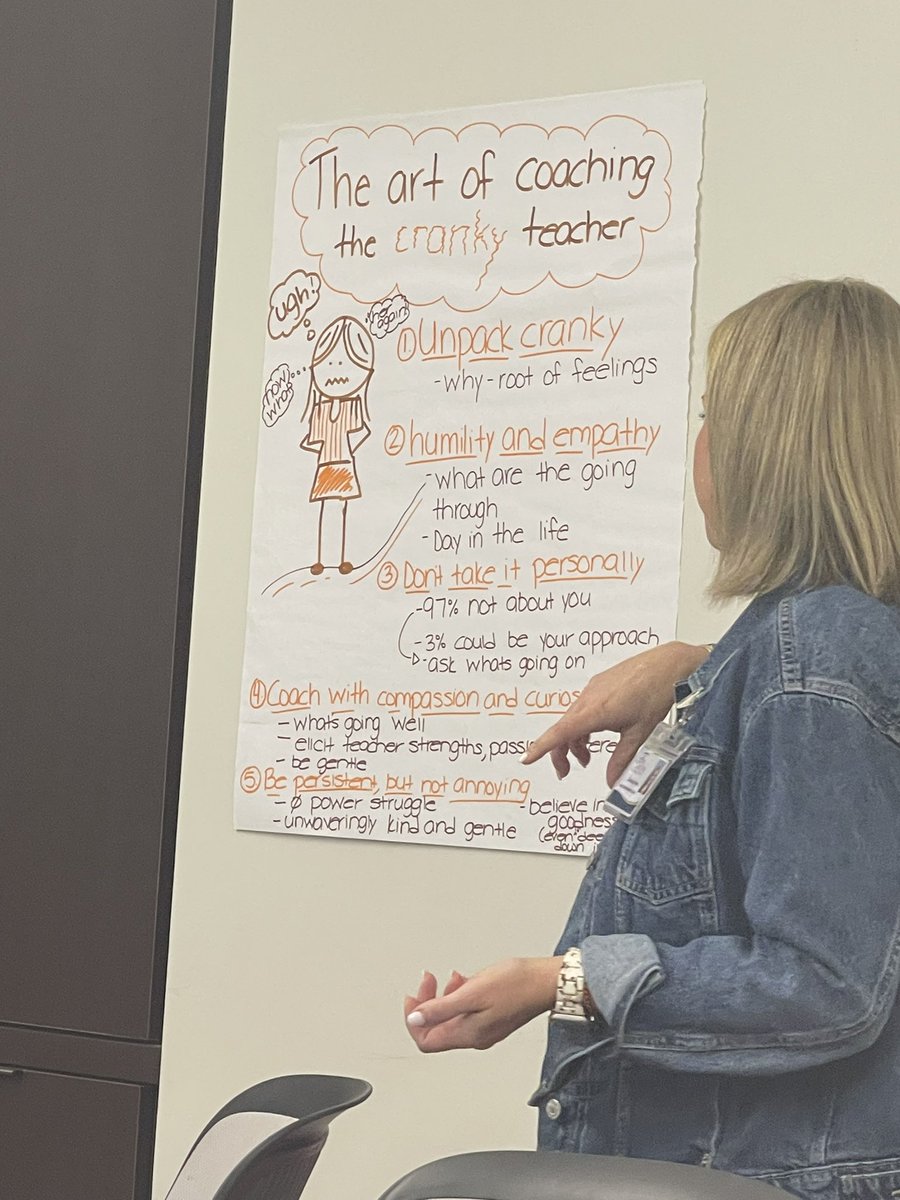 The art of coaching
the cranky teacher
ugh!
her again!
now what
① Unpack cranky
- why - root of feelings
② humility and empathy
- what are the going
through
- Day in the life
③ Dont take it personally
- 97% not about you
- 3% could be your approach
- ask whats going on
④ Coach with compassion and
- what's going well
- elicit teacher strengths,
- be gentle
⑤ Be persistent, but not annoying
- Ø power struggle
- unwaveringly kind and gentle
- believe in
goodness
(even
down